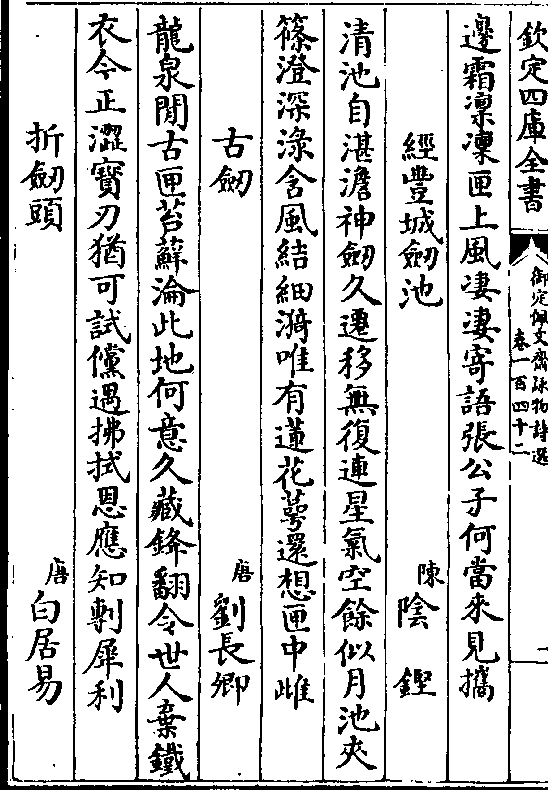 欽定四庫全書
御定佩文齋詠物詩選
卷一百四十二
邊霜凜凜匣上風凄凄寄語張公子何當來見攜
經豐城劒池
陳陰鏗
清池自湛澹神劒久遷移無復連星氣空餘似月池夾
篠澄深淥含風結細漪唯有蓮花萼還想匣中雌
古劒
唐劉長卿
龍泉閒古匣苔蘚淪此地何意久藏鋒翻令世人棄鐵
衣今正澀寶刃猶可試儻遇拂拭恩應知剸犀利
折劒頭
唐白居易